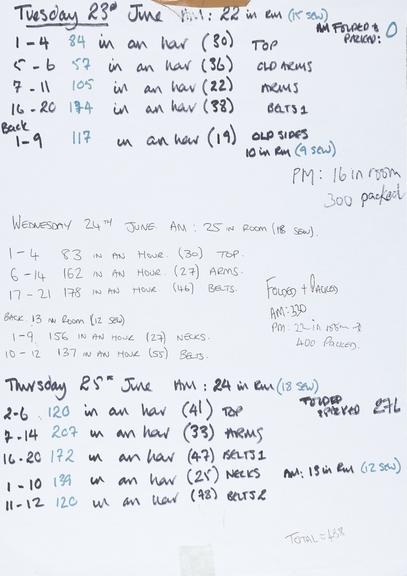 Tuesday 23rd June AM: 22 in Rm (15 sew)
AM FOLDED & PACKED: 0
1-4 84 in an hour (30) TOP
5-6 57 in an hour (36) OLD ARMS
7-11 105 in an hour (22) ARMS
16-20 174 in an hour (38) BELTS 1
Back
1-9 117 in an hour (19) OLD SIDES
10 in Rm (9 sew)
PM: 16 in room
300 packed
WEDNESDAY 24TH JUNE AM: 25 IN ROOM (18 SEW).
1-4 83 IN AN HOUR. (30) TOP.
6-14 162 IN AN HOUR. (27) ARMS.
17-21 178 IN AN HOUR. (46) BELTS.
FOLDED + PACKED
AM: 330
PM: 22 in room &
400 PACKED.
BACK 13 IN ROOM (12 SEW)
1-9 156 IN AN HOUR (27) NECKS.
10-12 137 IN AN HOUR (55) BELTS.
Thursday 25th June AM: 24 in Rm (18 sew)
FOLDED & PACKED 276
2-6 120 in an hour (41) TOP
7-14 207 in an hour (33) ARMS
16-20 172 in an hour (47) BELTS 1
1-10 139 in an hour (25) NECKS
AM: 13 in Rm (12 sew)
11-12 120 in an hour (78) BELTS 2
TOTAL = 438